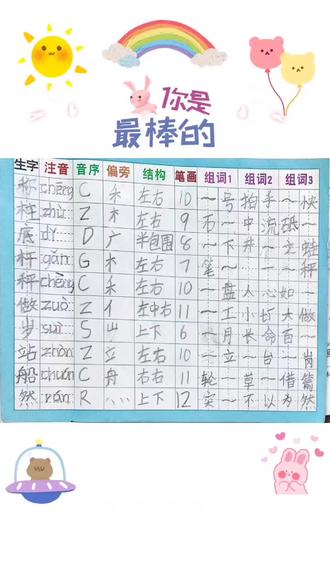 你是
最棒的
生字 注音 音序 偏旁 结构 笔画 组词1 组词2 组词3
称 chēng C 禾 左右 10 ～号 拍手～快
柱 zhù Z 木 左右 9 石～ 中流砥～
底 dǐ D 广 半包围 8 ～下 井～之蛙
杆 gǎn G 木 左右 7 笔～ 一～秤
秤 chèng C 禾 左右 10 ～盘 人心如～
做 zuò Z 亻 左中右 11 ～工 小题大做
岁 suì S 山 上下 6 ～月 长命百～
站 zhàn Z 立 左右 10 ～立 ～台 ～岗
船 chuán C 舟 左右 11 轮～ 草～借箭
然 rán R 灬 上下 12 突～ 不以为然